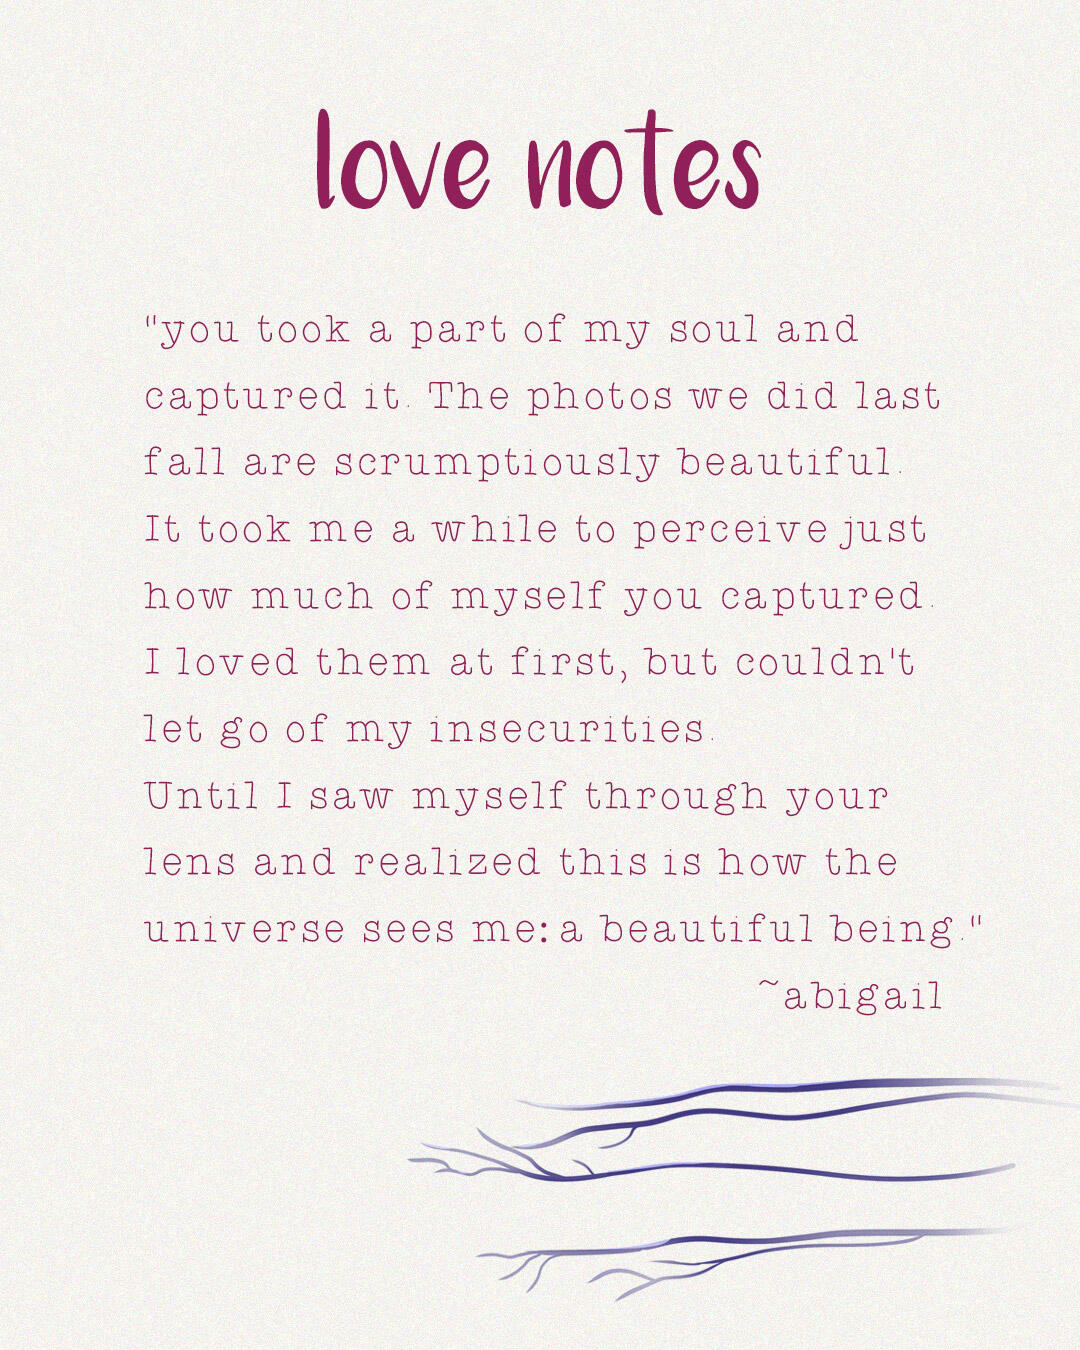 love notes
"you took a part of my soul and
captured it. The photos we did last
fall are scrumptiously beautiful.
It took me a while to perceive just
how much of myself you captured.
I loved them at first, but couldn't
let go of my insecurities.
Until I saw myself through your
lens and realized this is how the
universe sees me: a beautiful being."
~abigail